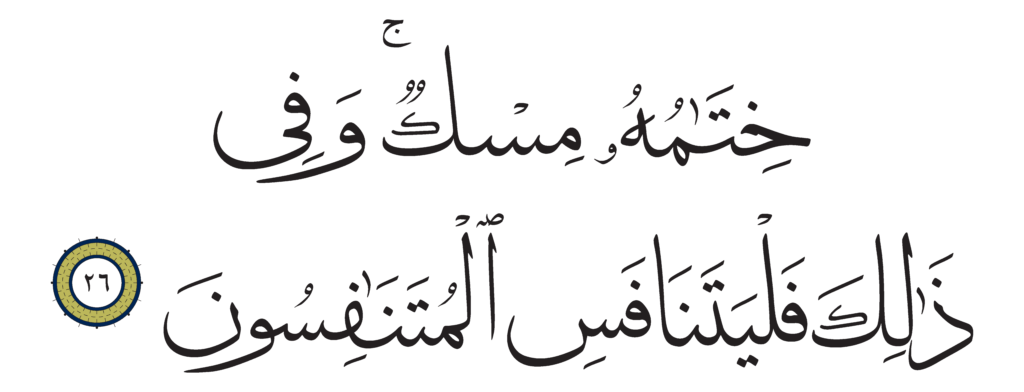 خِتَٰمُهُۥ مِسْكٌۚ وَفِى
ذَٰلِكَ فَلْيَتَنَافَسِ ٱلْمُتَنَٰفِسُونَ ٢٦